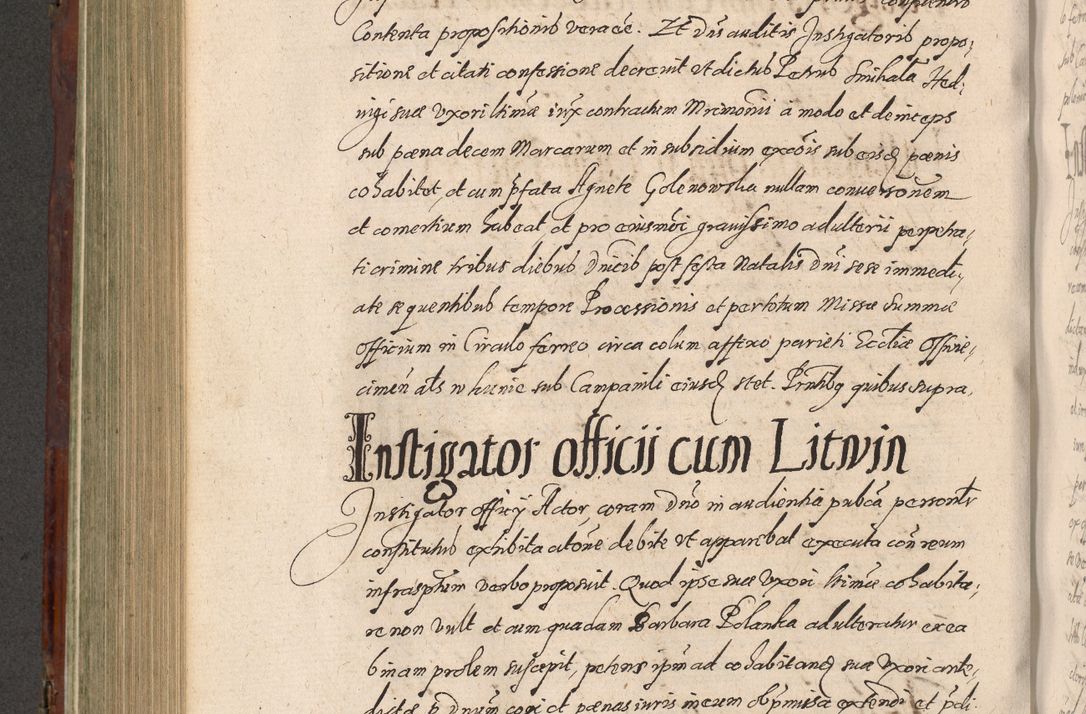 Contenta propositionis verace. Et Dns auditis Instigatoris propo,
sitione et citati confessione decrevit ut dictus Petrus Smihala Hed,
vigi suae Uxori ltimae iux contractum Mrimonii a modo et deinceps
sub paena decem Marcarum et in subsidium excois sub eisd paenis
cohabitet, et cum pfata Agnete Golenowska nullam conversonem
et comertium habeat et pro eiusmoi gravissimo adulterii perpetra,
ti crimine tribus diebus Dnicis post festa Natalis Dni sese immedi,
ate sequentibus tempore Processionis et per totum Missae Summae
Officium in Circulo ferreo circa colum affixo parieti Eccliae Osswie,
cimen als w kunie sub Campanili eiusd stet. Prntibq quibus supra,
Instigator officii cum Litwin
Instigator officy Actor coram Dno in audientia pubca personlr
constitutus exhibita citone debite ut apparebat executa con reum
infrasptum verbo proposuit. Quod ipse suae Uxori ltimae cohabita,
re non vult et cum quadam Barbara Polanka adulteratur ex ea
binam prolem suscepit, petens ipm ad cohabitand suae Uxori ante,
dictae p Dnum cogi et paenas iuris in eum ob pmissa extendi et